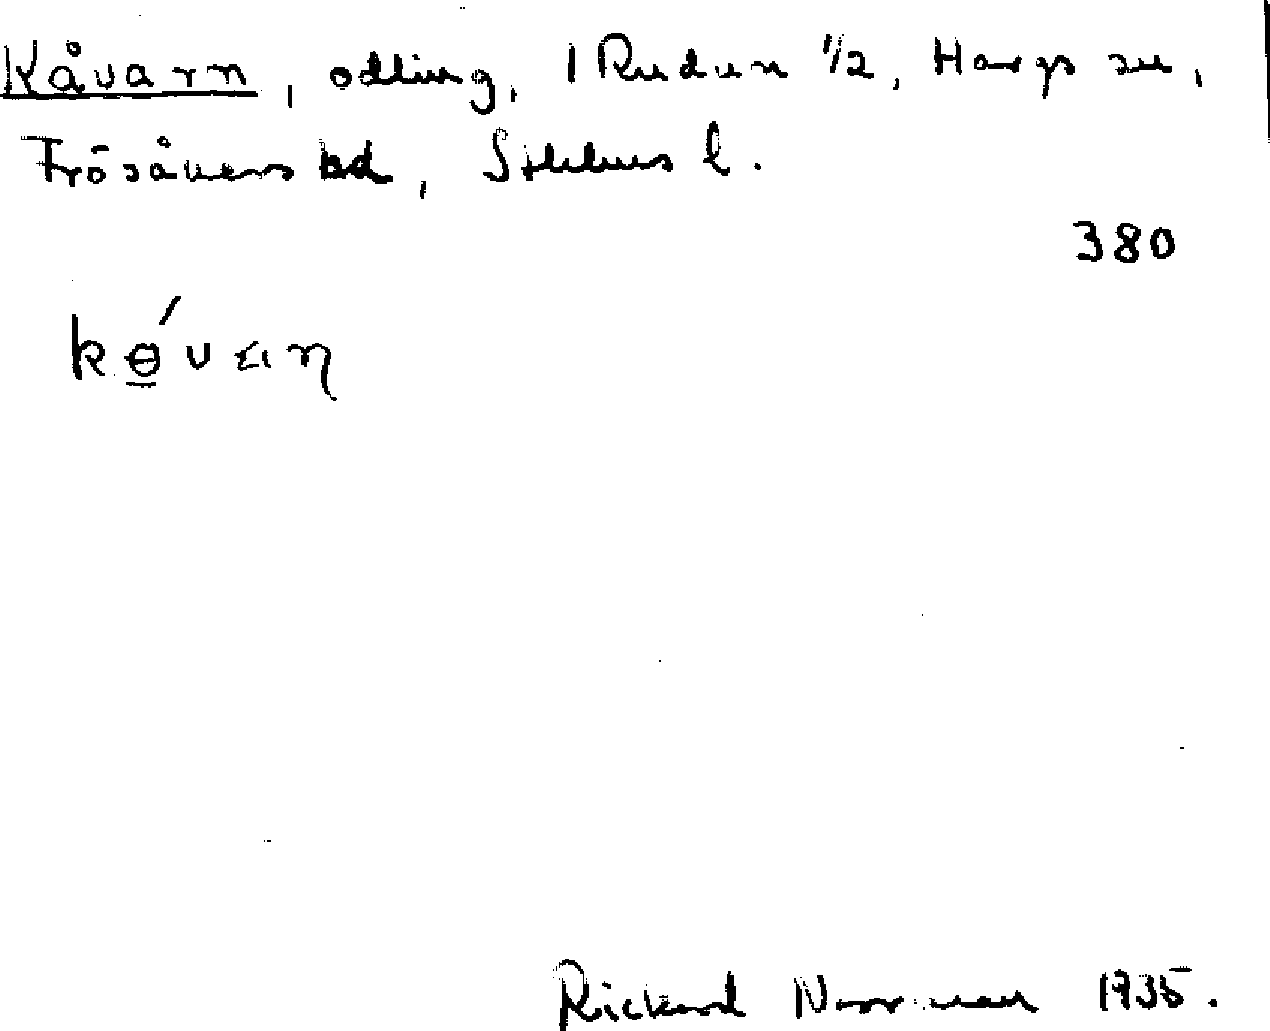 Kåvarn, odling, 1 Rudun 1/2, Hargs sn,
Frösåkers hd, Sthlms l.
380
Rickard Norrman 1935.